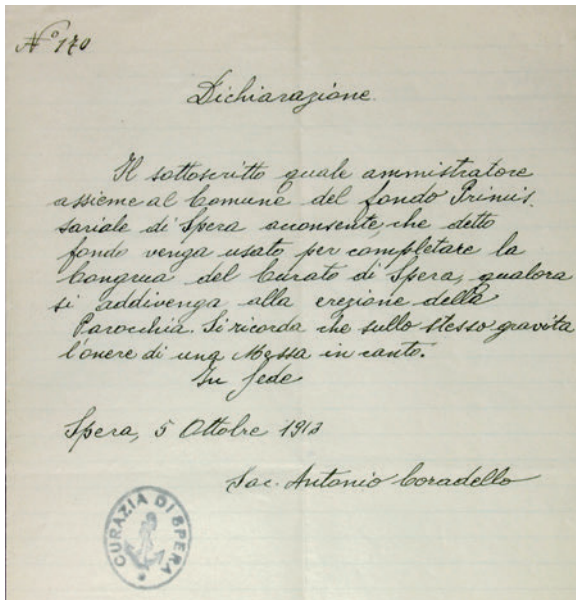 N° 170
Dichiarazione.
Il sottoscritto quale ammistratore
assieme al Comune del fondo Primis-
sariale di Spera aconsente che detto
fondo venga usato per completare la
Congrua del Curato di Spera, qualora
si addivenga alla erezione della
Parocchia. Si ricorda che sullo stesso gravita
l'onere di una Messa in canto.
In fede
Spera, 5 Ottobre 1913
Sac. Antonio Coradello
CURAZIA DI SPERA